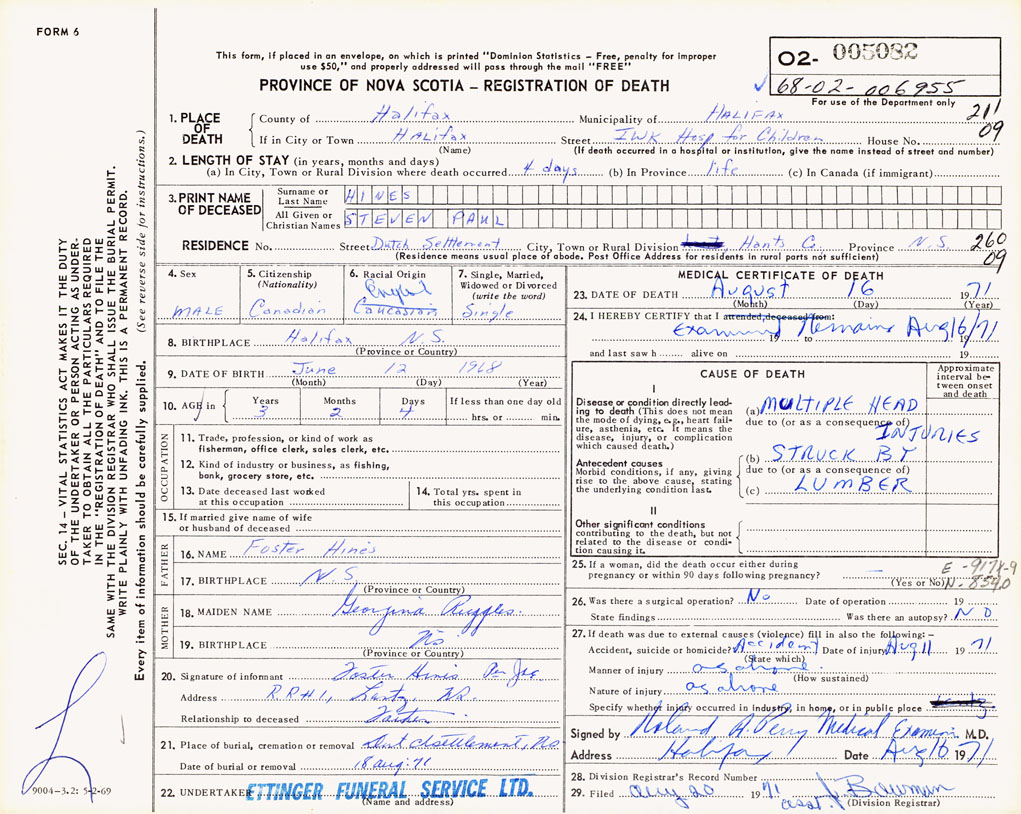 FORM 6
This form, if placed in an envelope, on which is printed "Dominion Statistics – Free, penalty for improper
use $50," and properly addressed will pass through the mail "FREE"
PROVINCE OF NOVA SCOTIA – REGISTRATION OF DEATH
02- 005082
68-02-006955
For use of the Department only
211
09
1. PLACE OF DEATH
County of Halifax Municipality of HALIFAX
If in City or Town HALIFAX Street IWK Hosp for Children House No.
(Name) (If death occurred in a hospital or institution, give the name instead of street and number)
2. LENGTH OF STAY (in years, months and days)
(a) In City, Town or Rural Division where death occurred 4 days (b) In Province life (c) In Canada (if immigrant)
3. PRINT NAME OF DECEASED
Surname or Last Name HINES
All Given or Christian Names STEVEN PAUL
RESIDENCE No. Street Dutch Settlement City, Town or Rural Division Hants C. Province N.S.
(Residence means usual place of abode. Post Office Address for residents in rural parts not sufficient)
260
09
4. Sex
MALE
5. Citizenship
(Nationality)
Canadian
6. Racial Origin
English
Caucasion
7. Single, Married,
Widowed or Divorced
(write the word)
Single
8. BIRTHPLACE Halifax N.S.
(Province or Country)
9. DATE OF BIRTH June 12 1968
(Month) (Day) (Year)
10. AGE in Years Months Days If less than one day old
3 2 4 hrs. or min.
OCCUPATION
11. Trade, profession, or kind of work as
fisherman, office clerk, sales clerk, etc.
12. Kind of industry or business, as fishing,
bank, grocery store, etc.
13. Date deceased last worked
at this occupation
14. Total yrs. spent in
this occupation
15. If married give name of wife
or husband of deceased
FATHER
16. NAME Foster Hines
17. BIRTHPLACE N.S.
(Province or Country)
MOTHER
18. MAIDEN NAME Georgina Ruggles.
19. BIRTHPLACE NS
(Province or Country)
20. Signature of informant Foster Hines
Address R.R#1, Lantz, NS.
Relationship to deceased Father
21. Place of burial, cremation or removal
Date of burial or removal 18 aug. 71
22. UNDERTAKER ETTINGER FUNERAL SERVICE LTD.
(Name and address)
MEDICAL CERTIFICATE OF DEATH
23. DATE OF DEATH August 16 1971
(Month) (Day) (Year)
24. I HEREBY CERTIFY that I attended, deceased from:
Examined Remains Aug 16/71
19 to 19
and last saw h alive on 19
CAUSE OF DEATH
Approximate
interval be-
tween onset
and death
I
Disease or condition directly lead-
ing to death (This does not mean
the mode of dying, e.g., heart fail-
ure, asthenia, etc. It means the
disease, injury, or complication
which caused death.)
(a) MULTIPLE HEAD
due to (or as a consequence of)
INJURIES
Antecedent causes
Morbid conditions, if any, giving
rise to the above cause, stating
the underlying condition last.
(b) STRUCK BY
due to (or as a consequence of)
(c) LUMBER
II
Other significant conditions
contributing to the death, but not
related to the disease or condi-
tion causing it.
25. If a woman, did the death occur either during
pregnancy or within 90 days following pregnancy? –
(Yes or No)
E-917X-9
N-8540
26. Was there a surgical operation? No Date of operation 19
State findings Was there an autopsy? NO
27. If death was due to external causes (violence) fill in also the following:–
Accident, suicide or homicide? Accident Date of injury Aug 11 1971
(State which)
Manner of injury as above
(How sustained)
Nature of injury as above
Specify whether injury occurred in industry, in home, or in public place
Signed by Roland A. Perry Medical Examiner M.D.
Address Halifax Date Aug 16 1971
28. Division Registrar's Record Number
29. Filed aug 20 1971 asst. J Bowman
(Division Registrar)
SEC. 14 – VITAL STATISTICS ACT MAKES IT THE DUTY
OF THE UNDERTAKER OR PERSON ACTING AS UNDER-
TAKER TO OBTAIN ALL THE PARTICULARS REQUIRED
IN THE "REGISTRATION OF DEATH" AND TO FILE THE
SAME WITH THE DIVISION REGISTRAR WHO SHALL ISSUE THE BURIAL PERMIT.
WRITE PLAINLY WITH UNFADING INK. THIS IS A PERMANENT RECORD.
Every item of information should be carefully supplied. (See reverse side for instructions.)
9004-3.2: 5-2-69